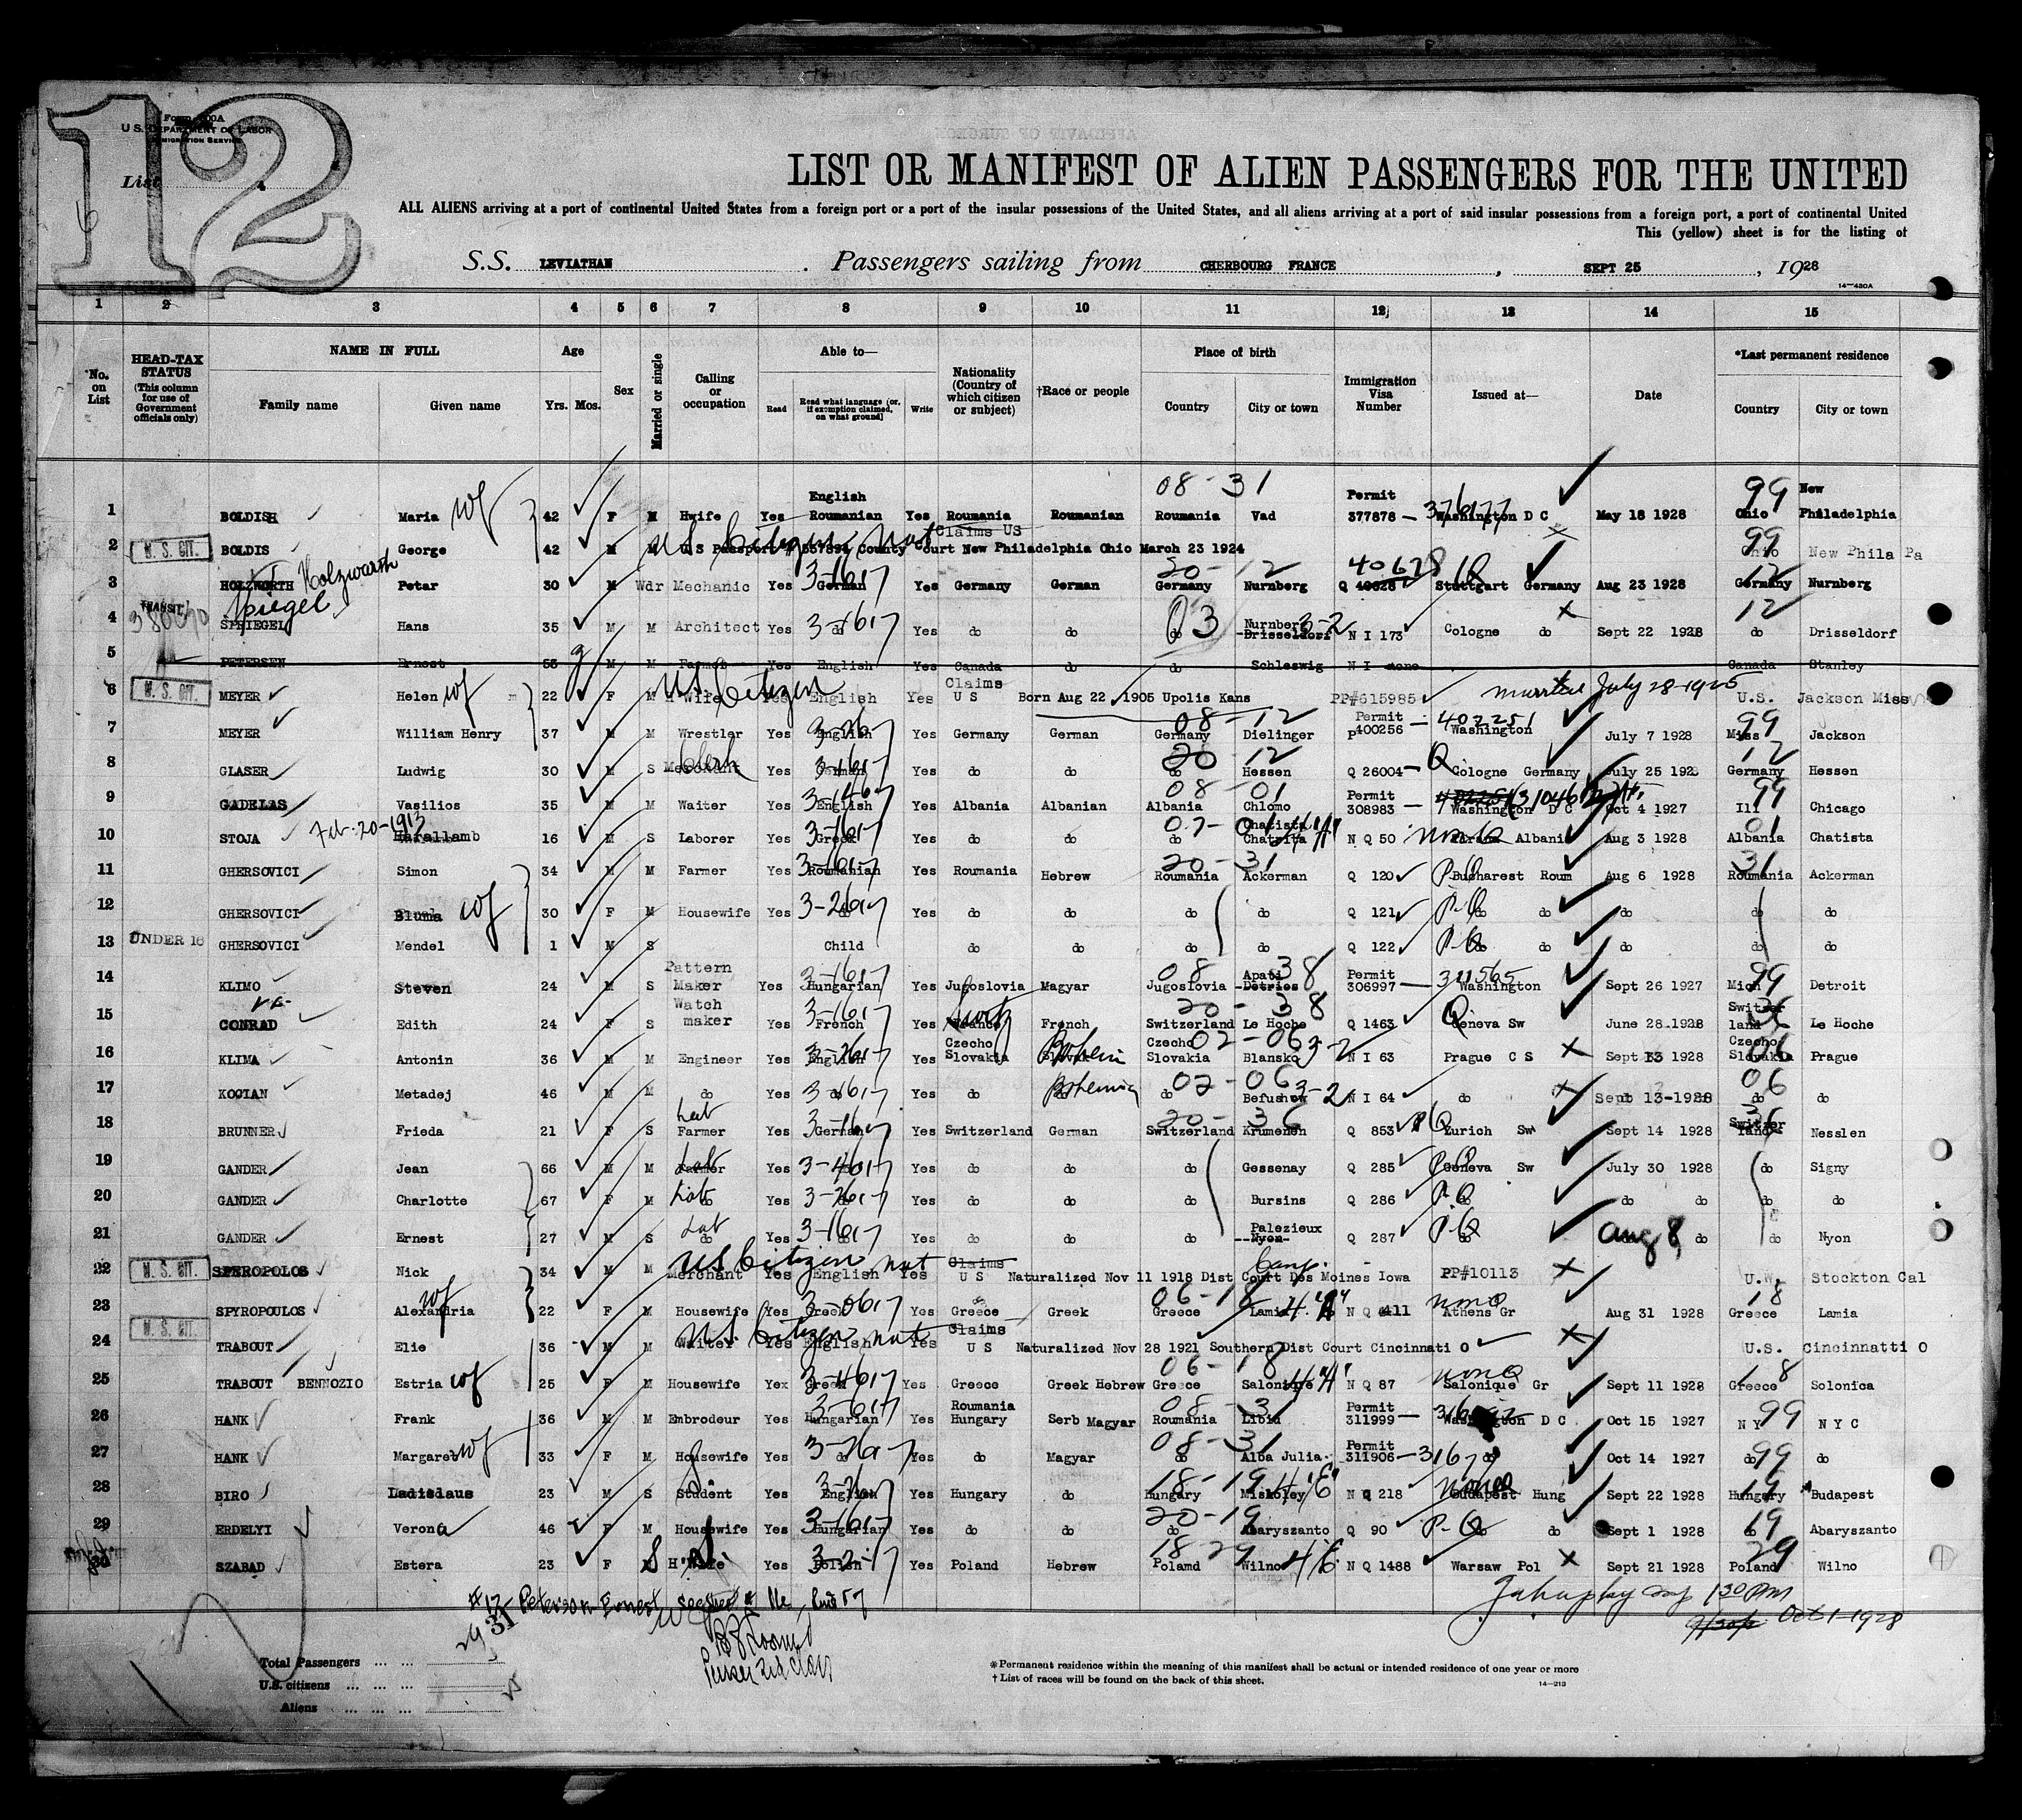 12
Form 500A
U.S. DEPARTMENT OF LABOR
IMMIGRATION SERVICE
List
6
LIST OR MANIFEST OF ALIEN PASSENGERS FOR THE UNITED
ALL ALIENS arriving at a port of continental United States from a foreign port or a port of the insular possessions of the United States, and all aliens arriving at a port of said insular possessions from a foreign port, a port of continental United
This (yellow) sheet is for the listing of
S.S. LEVIATHAN . Passengers sailing from CHERBOURG FRANCE , SEPT 25 , 1928
14—430A
1 2 3 4 5 6 7 8 9 10 11 12 13 14 15
No. on List
HEAD-TAX STATUS (This column for use of Government officials only)
NAME IN FULL Family name Given name
Age Yrs. Mos.
Sex
Married or single
Calling or occupation
Able to— Read Read what language (or, if exemption claimed, on what ground) Write
Nationality (Country of which citizen or subject)
†Race or people
Place of birth Country City or town
Immigration Visa Number
Issued at—
Date
*Last permanent residence Country City or town
08-31
1 BOLDISH Maria wf 42 F M Hwife Yes English Roumanian Yes Roumania Roumanian Roumania Vad Permit 377878 — 376177 Washington D C May 18 1928 99 Ohio New Philadelphia
2 U.S. CIT. BOLDIS George 42 M M US Citizen Nat Claims US U S Passport # 557894 County Court New Philadelphia Ohio March 23 1924 99 Ohio New Phila Pa
3 HOLZWORTH Holzwarth Petar 30 M Wdr Mechanic Yes 3-1617 German Yes Germany German 20-12 Germany Nurnberg Q 40628 40628 Stuttgart Germany Aug 23 1928 12 Germany Nurnberg
4 TRANSIT SPRIEGEL Spiegel Hans 35 M M Architect Yes 3-1617 do Yes do do 03 do Nurnberg Drisseldorf 3-2 N I 173 Cologne do Sept 22 1928 12 do Drisseldorf
5 PETERSEN Ernest 53 M M Farmer Yes English Yes Canada do do Schleswig N I none Canada Stanley
6 U.S. CIT. MEYER Helen wf 22 F M H Wife US Citizen Yes English Yes Claims U S Born Aug 22, 1905 Upolis Kans PP#615985 married July 28-1925 U.S. Jackson Miss
7 MEYER William Henry 37 M M Wrestler Yes English Yes Germany German 08-12 Germany Dielinger Permit P400256 — 402251 Washington July 7 1928 99 Miss Jackson
8 GLASER Ludwig 30 M S Merchant Clerk Yes 3-1617 German Yes do do 20-12 do Hessen Q 26004 Q Cologne Germany July 25 1928 12 Germany Hessen
9 GADELAS Vasilios 35 M M Waiter Yes English Yes Albania Albanian 08-01 Albania Chlomo Permit 308983 — Washington D C Oct 4 1927 99 Ill Chicago
10 STOJA Feb-20-1913 Harallamb 16 M S Laborer Yes 3-1617 Greek Yes do do do Chatista N Q 50 non Q Albani Aug 3 1928 01 Albania Chatista
11 GHERSOVICI Simon 34 M M Farmer Yes 3-1617 Roumanian Yes Roumania Hebrew 20-31 Roumania Ackerman Q 120 P Q Bucharest Roum Aug 6 1928 31 Roumania Ackerman
12 GHERSOVICI Bluma wf 30 F M Housewife Yes 3-2617 do Yes do do do do Q 121 P-Q do do do do do
13 UNDER 16 GHERSOVICI Mendel 1 M S Child do do do do Q 122 P-Q do do do do do
14 KLIMO Steven 24 M S Pattern Maker Yes 3-1617 Hungarian Yes Jugoslovia Magyar 08-38 Jugoslovia Apati Detries Permit 306997 — 311565 Washington Sept 26 1927 99 Mich Detroit
15 CONRAD Edith 24 F S Watch maker Yes 3-1617 French Yes France Switz French 20-38 Switzerland Le Hoche Q 1463 Q Geneva Sw June 28 1928 36 Switzer land Le Hoche
16 KLIMA Antonin 36 M M Engineer Yes 3-2617 English Yes Czecho Slovakia Bohem 02-06 Czecho Slovakia Blansko 3-2 N I 63 Prague C S Sept 13 1928 06 Czecho Slovakia Prague
17 KOCIAN Metadej 46 M M do Yes 3-1617 do Yes do Bohemia 02-06 do Befushow 3-2 N I 64 do Sept 13-1928 06 do do
18 BRUNNER Frieda 21 F S Farmer Yes 3-1617 German Yes Switzerland German 20-36 Switzerland Krumenen Q 853 P Q Zurich Sw Sept 14 1928 36 Switzer land Nesslen
19 GANDER Jean 66 M M Farmer Yes 3-4617 Yes do do do Gessenay Q 285 P Q Geneva Sw July 30 1928 do Signy
20 GANDER Charlotte 67 F M do Yes 3-2617 Yes do do do Bursins Q 286 P. Q do do do do do
21 GANDER Ernest 27 M S do Yes 3-1617 Yes do do Palezieux Nyon Q 287 P-Q do Aug 8, do do Nyon
22 U.S. CIT. SPEROPOLOS Nick 34 M M Merchant US Citizen nat Yes English Yes Claims U S Naturalized Nov 11 1918 Dist Court Des Moines Iowa PP#10113 Stockton Cal
23 SPYROPOULOS Alexandria wf 22 F M Housewife Yes 3-0617 Greek Yes Greece Greek 06-18 Greece Lamia 4"A" N Q 411 non Q Athens Gr Aug 31 1928 18 Greece Lamia
24 U.S. CIT. TRABOUT Elie 36 M M Waiter US Citizen nat Yes English Yes Claims U S Naturalized Nov 28 1921 Southern Dist Court Cincinnati O U.S. Cincinnatti O
25 TRABOUT BENNOZIO Estria wf 25 F M Housewife Yex 3-4617 Greek Yes Greece Greek Hebrew 06-18 Greece Salonique 4"A" N Q 87 non Q Salonique Gr Sept 11 1928 18 Greece Solonica
26 HANK Frank 36 M M Embrodeur Yes 3-617 Hungarian Yes Roumania Hungary Serb Magyar 08-31 Roumania Libin Permit 311999 — Washington D C Oct 15 1927 99 N Y N Y C
27 HANK Margaret wf 33 F M Housewife Yes 3-2617 do Yes do Magyar 08-31 do Alba Julia Permit 311906 — do Oct 14 1927 99 do do
28 BIRO Ladislaus 23 M S Student Yes English Yes Hungary do 18-19 Hungary Miskolcy 4"E" N Q 218 Budapest Hung Sept 22 1928 19 Hungary Budapest
29 ERDELYI Verona 46 F M Housewife Yes 3-1617 Hungarian Yes do do 20-19 do Abaryszanto Q 90 P-Q do do Sept 1 1928 19 do Abaryszanto
30 SZABAD Estera 23 F S H Wife Yes 3-2-17 Polish Yes Poland Hebrew 18-29 Polamd Wilno N Q 1488 Warsaw Pol Sept 21 1928 29 Poland Wilno
Peterson Ernest
1 30 PM
Oct 1-1928
31
Purser 3rd class
Total Passengers
U.S. citizens
Aliens
*Permanent residence within the meaning of this manifest shall be actual or intended residence of one year or more
† List of races will be found on the back of this sheet.
14—213